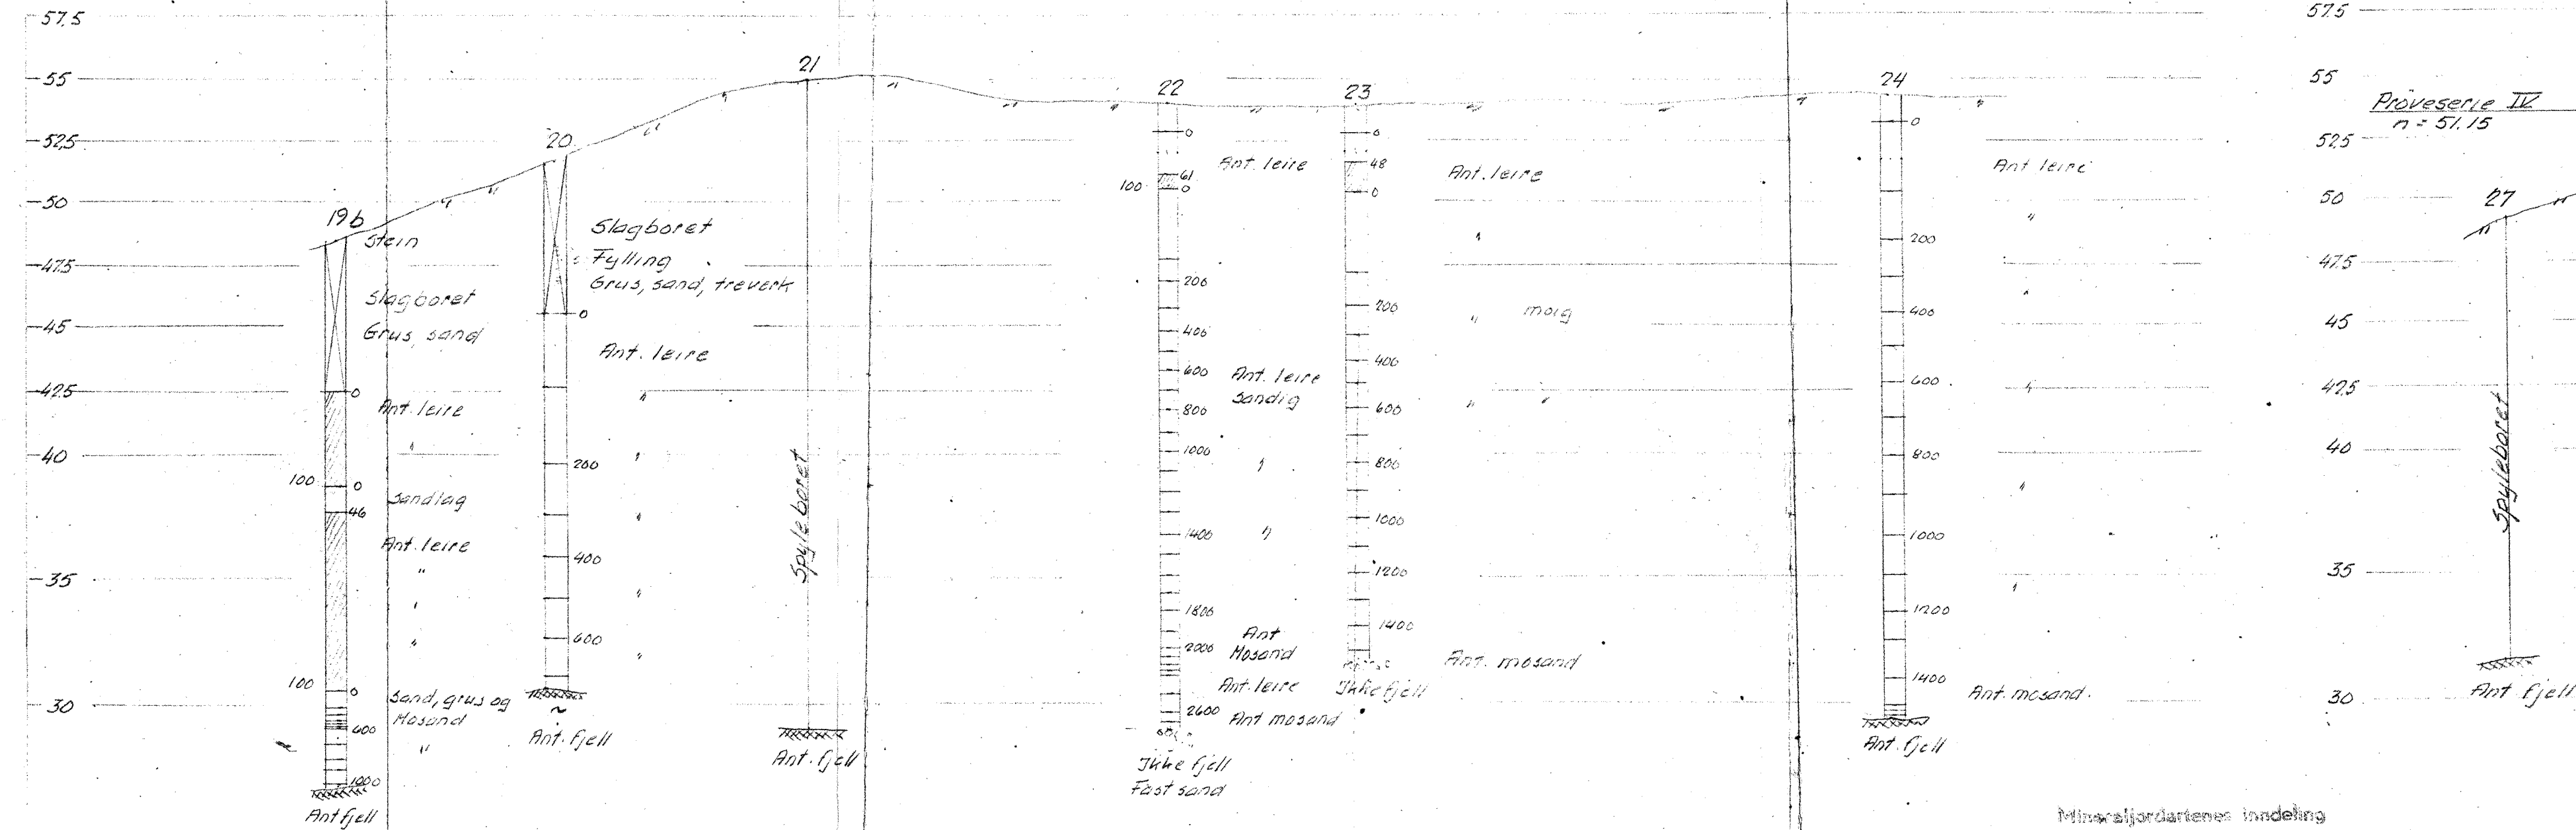 57,5
55
52,5
50
47.5
45
42.5
40
35
30
19b
Stein
Slagboret
Grus, sand
0
Ant. leire
"
100
0
Sandlag
46
Ant. leire
"
"
"
100
0
Sand, grus og
Mosand
600
"
1000
Ant fjell
20
Slagboret
Fylling
Grus, sand, treverk
0
Ant. leire
"
200
"
"
400
"
600
"
Ant. fjell
21
Spyleboret
Ant. fjell
22
0
Ant. leire
61
100
0
200
400
600
Ant. leire
Sandig
800
1000
"
1400
"
1800
Ant
Mosand
2000
Ant. leire
2600
Ant mosand
Ikke fjell
Fast sand
23
0
48
Ant. leire
0
"
200
"
400
600
"
"
800
1000
1200
1400
Ant. mosand
Ikke fjell
24
0
Ant leire
"
200
"
400
600
"
800
"
1000
"
1200
1400
Ant. mosand.
Ant. fjell
57.5
55
52.5
50
47.5
45
42.5
40
35
30
Prøveserie IV
n = 51.15
27
Spyleboret
Ant fjell
Mineraljordartenes inndeling